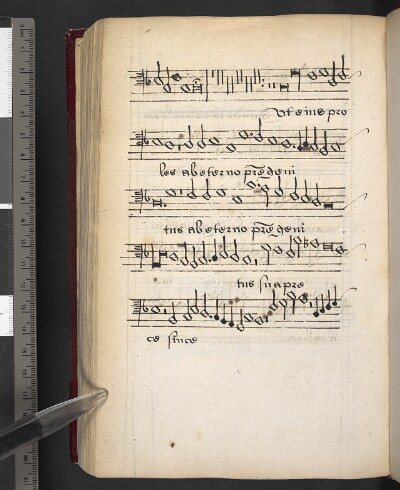 Ut eius pro
les ab eterno p̄re geni
tus ab eterno p̄re geni
tus sua pre
ce since